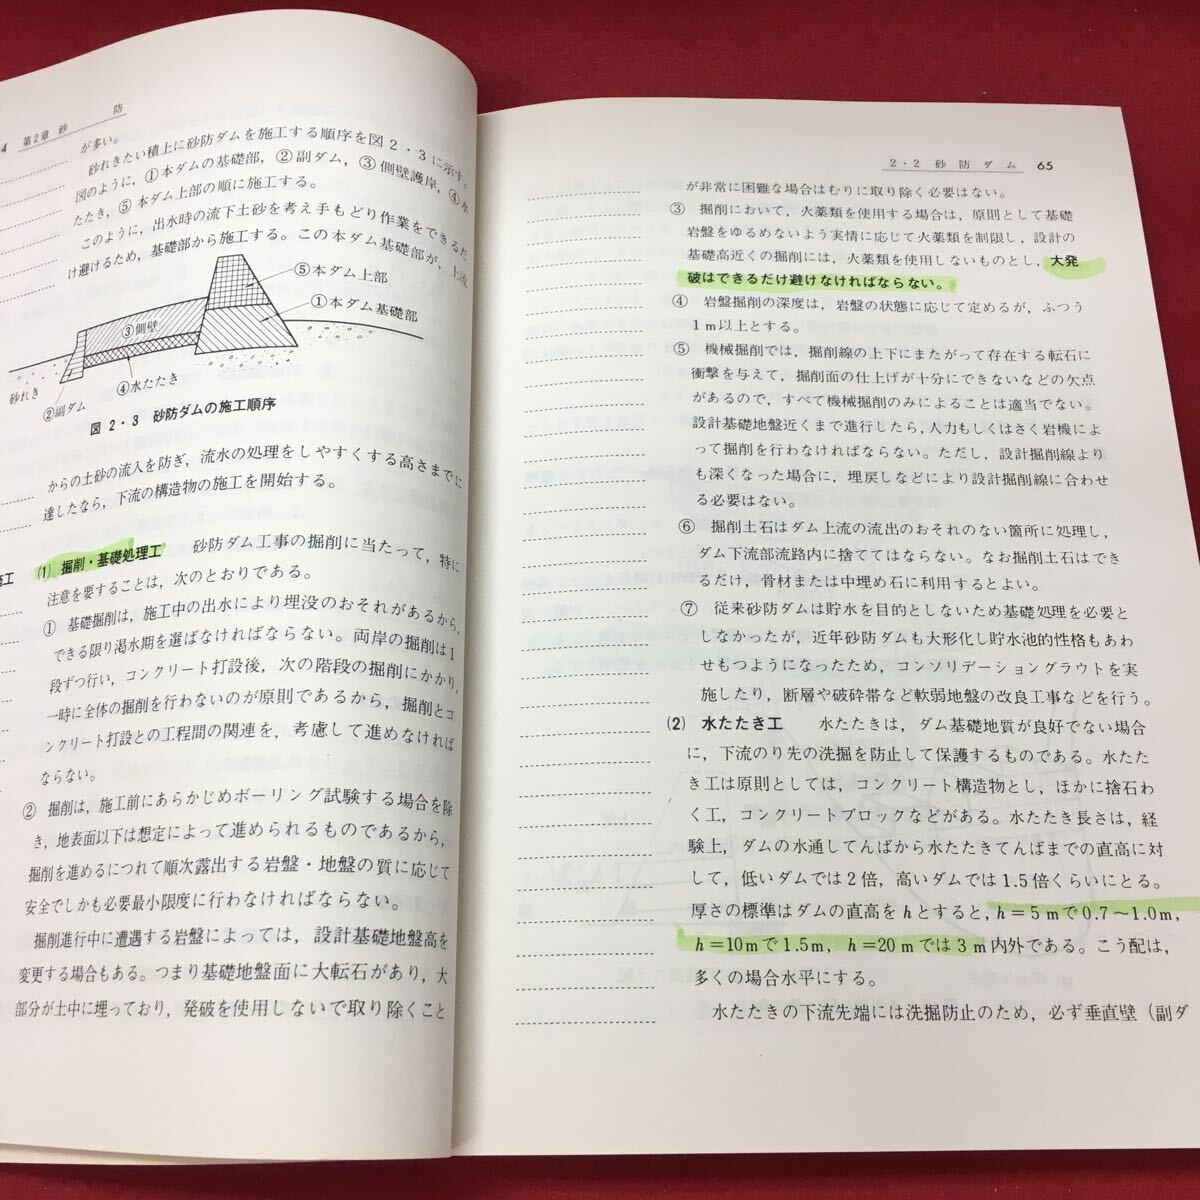 4 第2章 砂 防
が多い。
砂れきたい積上に砂防ダムを施工する順序を図2・3に示す。
図のように，①本ダムの基礎部，②副ダム，③側壁護岸，④水
たたき，⑤本ダム上部の順に施工する。
このように，出水時の流下土砂を考え手もどり作業をできるだ
け避けるため，基礎部から施工する。この本ダム基礎部が，上流
⑤本ダム上部
①本ダム基礎部
③側壁
④水たたき
砂れき
②副ダム
図2・3 砂防ダムの施工順序
からの土砂の流入を防ぎ，流水の処理をしやすくする高さまでに
達したなら，下流の構造物の施工を開始する。
施工
(1) 掘削・基礎処理工 砂防ダム工事の掘削に当たって，特に
注意を要することは，次のとおりである。
① 基礎掘削は，施工中の出水により埋没のおそれがあるから，
できる限り渇水期を選ばなければならない。両岸の掘削は1
段ずつ行い，コンクリート打設後，次の階段の掘削にかかり，
一時に全体の掘削を行わないのが原則であるから，掘削とコ
ンクリート打設との工程間の関連を，考慮して進めなければ
ならない。
② 掘削は，施工前にあらかじめボーリング試験する場合を除
き，地表面以下は想定によって進められるものであるから，
掘削を進めるにつれて順次露出する岩盤・地盤の質に応じて
安全でしかも必要最小限度に行わなければならない。
掘削進行中に遭遇する岩盤によっては，設計基礎地盤高を
変更する場合もある。つまり基礎地盤面に大転石があり，大
部分が土中に埋っており，発破を使用しないで取り除くこと
2・2 砂防ダム 65
が非常に困難な場合はむりに取り除く必要はない。
③ 掘削において，火薬類を使用する場合は，原則として基礎
岩盤をゆるめないよう実情に応じて火薬類を制限し，設計の
基礎高近くの掘削には，火薬類を使用しないものとし，大発
破はできるだけ避けなければならない。
④ 岩盤掘削の深度は，岩盤の状態に応じて定めるが，ふつう
1m以上とする。
⑤ 機械掘削では，掘削線の上下にまたがって存在する転石に
衝撃を与えて，掘削面の仕上げが十分にできないなどの欠点
があるので，すべて機械掘削のみによることは適当でない。
設計基礎地盤近くまで進行したら，人力もしくはさく岩機によ
って掘削を行わなければならない。ただし，設計掘削線より
も深くなった場合に，埋戻しなどにより設計掘削線に合わせ
る必要はない。
⑥ 掘削土石はダム上流の流出のおそれのない箇所に処理し，
ダム下流部流路内に捨ててはならない。なお掘削土石はでき
るだけ，骨材または中埋め石に利用するとよい。
⑦ 従来砂防ダムは貯水を目的としないため基礎処理を必要と
しなかったが，近年砂防ダムも大形化し貯水池的性格もあわ
せもつようになったため，コンソリデーショングラウトを実
施したり，断層や破砕帯など軟弱地盤の改良工事などを行う。
(2) 水たたき工 水たたきは，ダム基礎地質が良好でない場合
に，下流のり先の洗掘を防止して保護するものである。水たた
き工は原則としては，コンクリート構造物とし，ほかに捨石わ
く工，コンクリートブロックなどがある。水たたき長さは，経
験上，ダムの水通してんばから水たたきてんばまでの直高に対
して，低いダムでは2倍，高いダムでは1.5倍くらいにとる。
厚さの標準はダムの直高をhとすると，h＝5mで0.7～1.0m，
h＝10mで1.5m，h＝20mでは3m内外である。こう配は，
多くの場合水平にする。
水たたきの下流先端には洗掘防止のため，必ず垂直壁（副ダ